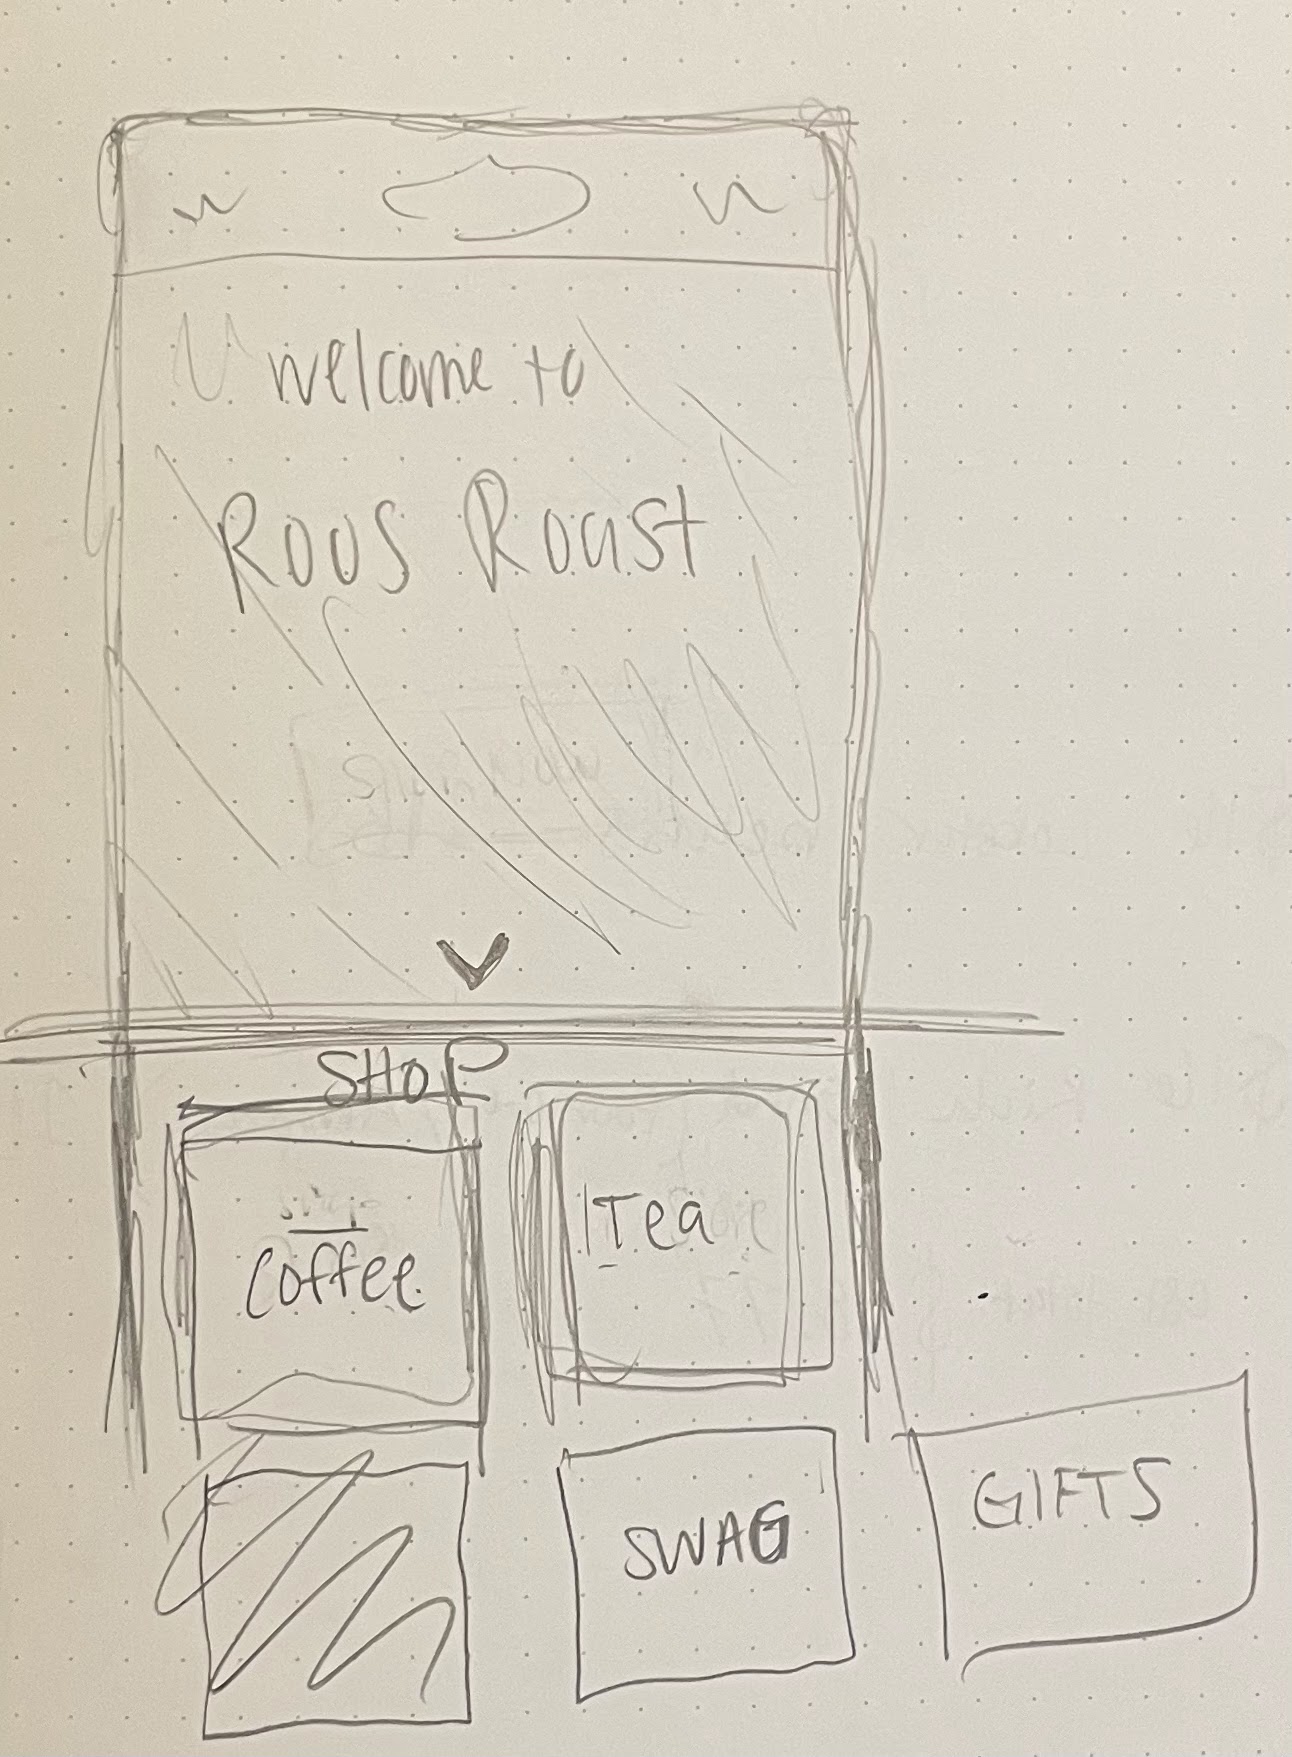 welcome to
Roos Roast
SHOP
Coffee
Tea
SWAG
GIFTS